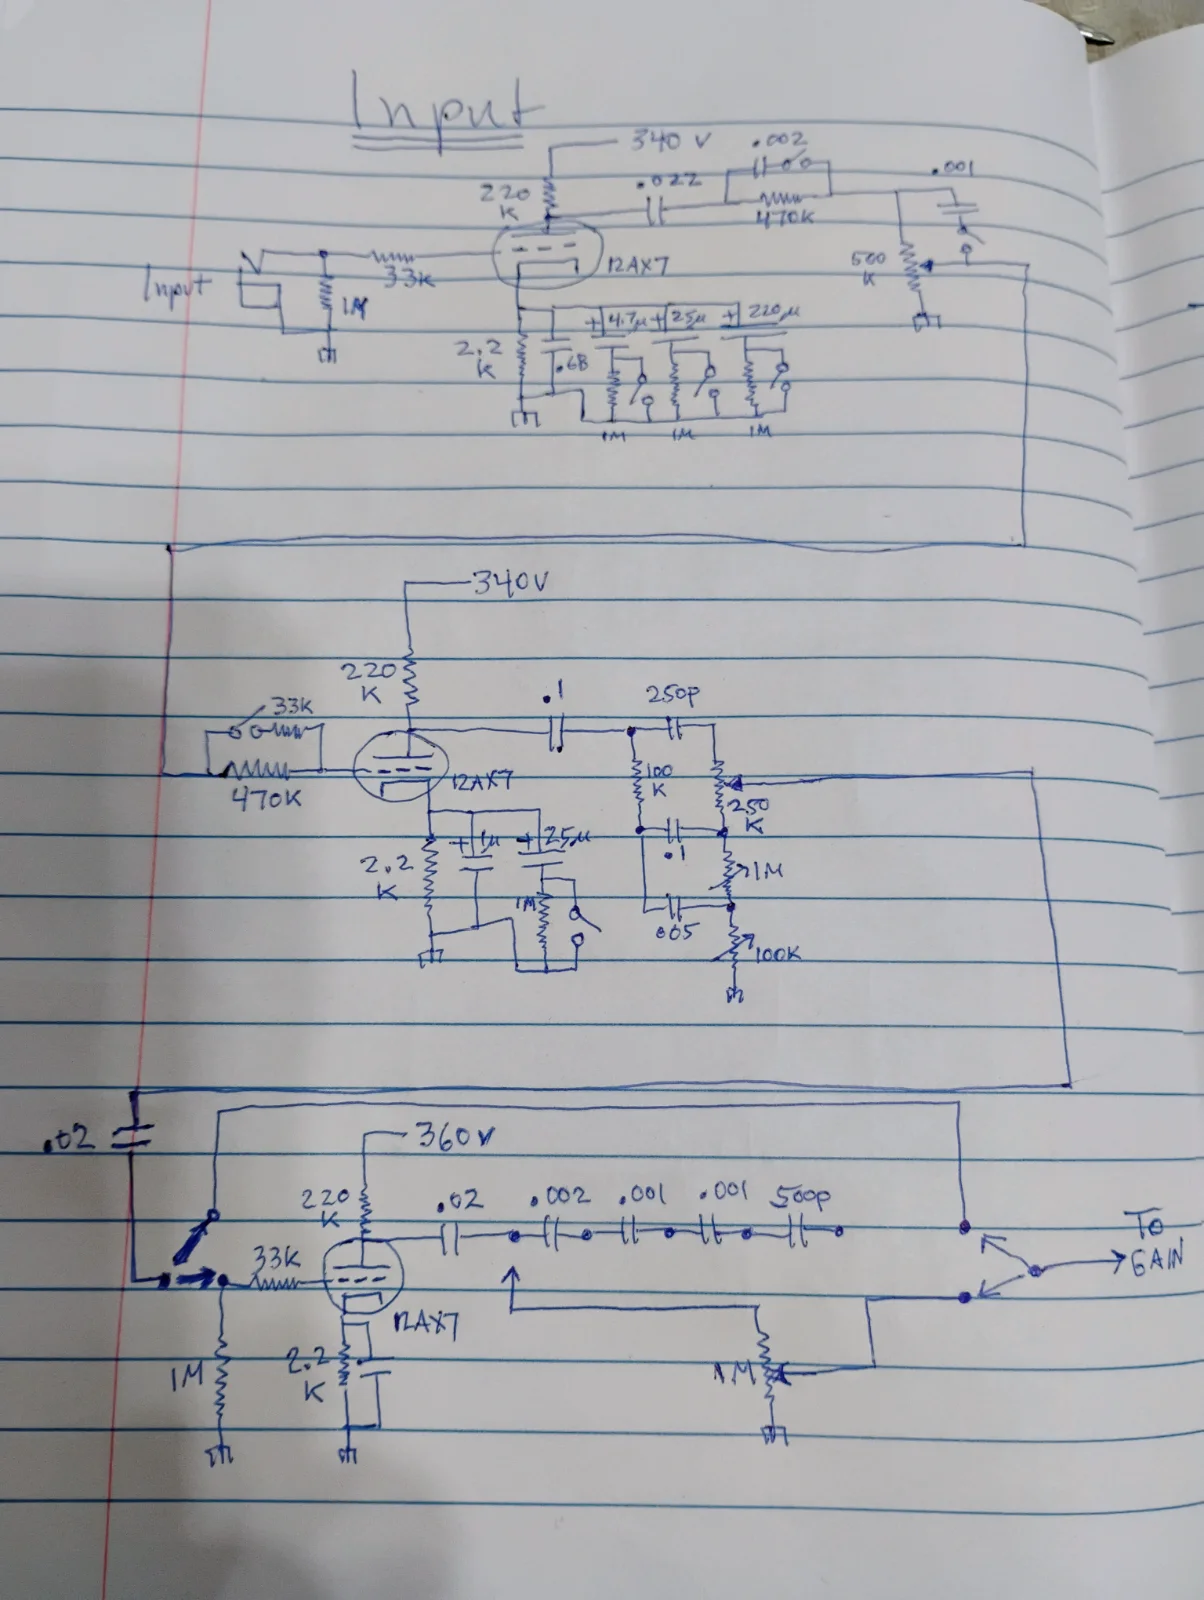 Input
340 V
.002
.022
.001
220
K
470K
500
K
12AX7
33K
Input
1M
2.2
K
.68
+ 4.7µ + 25µ + 220µ
1M 1M 1M
340V
220
K
.1
250P
33K
470K
12AX7
100
K
250
K
.1
1M
.005
100K
2.2
K
+ 1µ + 25µ
1M
.02
360V
220
K
.02 .002 .001 .001 500p
33K
12AX7
1M
2.2
K
1M
TO
GAIN